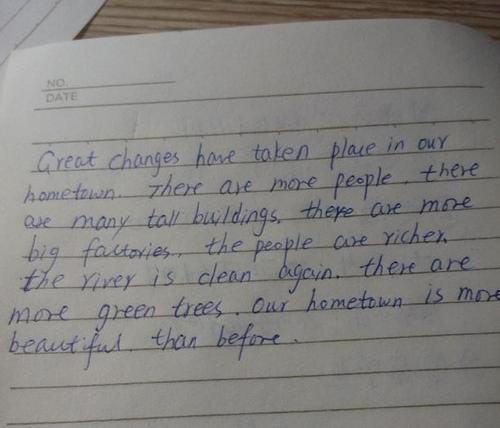 NO.
DATE
Great changes have taken place in our
hometown. There are more people. there
are many tall buildings. there are more
big factories. the people are richer.
the river is clean again. there are
more green trees. Our hometown is more
beautiful. than before.